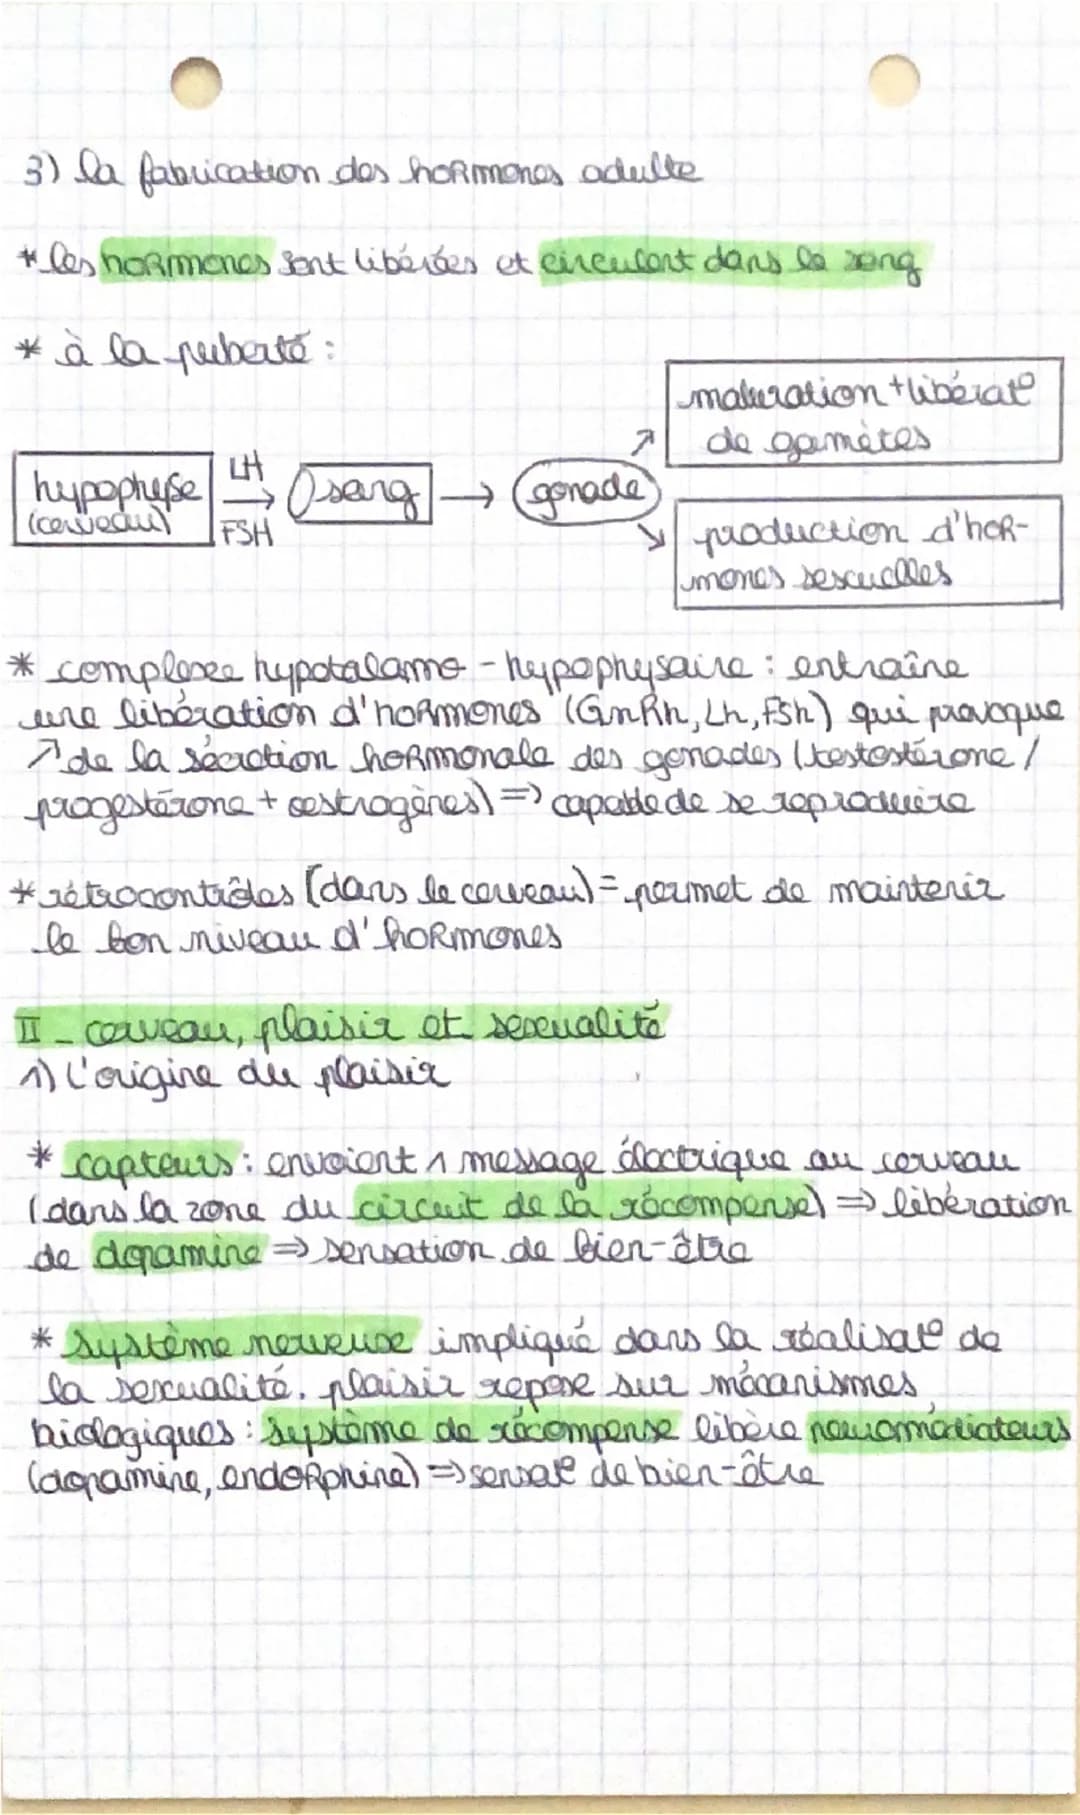 3) la fabrication des hormones adulte
* les hormones sont libérées et circulent dans le sang
* à la puberté :
maturation + libérat°
de gamètes
hypophyse
(cerveau)
LH
→
FSH
sang → gonade
production d'hor-
mones sexuelles
* complexe hypotalamo - hypophysaire : entraîne
une libération d'hormones (GnRh, Lh, FSh) qui provoque
↗ de la sécrétion hormonale des gonades (testostérone /
progestérone + œstrogènes) => capable de se reproduire
* rétrocontrôles (dans le cerveau) = permet de maintenir
le bon niveau d'hormones
II _ cerveau, plaisir et sexualité
1) L'origine du plaisir
* capteurs : envoient 1 message électrique au cerveau
(dans la zone du circuit de la récompense) => libération
de dopamine => sensation de bien-être
* système nerveux impliqué dans la réalisat° de
la sexualité. plaisir repose sur mécanismes
biologiques : système de récompense libère neuromédiateurs
(dopamine, endorphine) => sensat° de bien-être